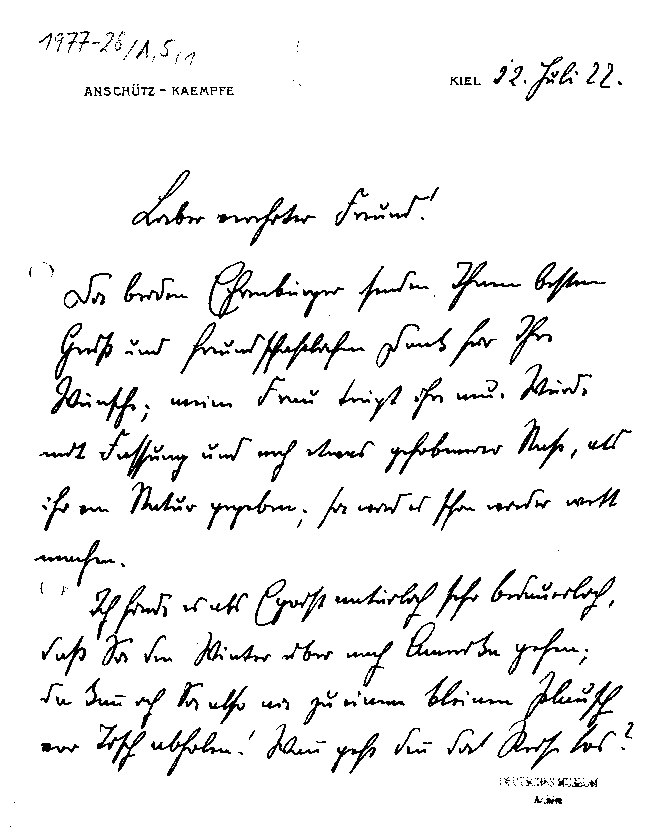 1977-28/A,5,1
ANSCHÜTZ-KAEMPFE
KIEL 22. Juli 22.
Lieber verehrter Freund!
Die beiden Ehrenbürger senden Ihnen besten
Gruß und freundschaftlichen Dank für Ihre
Wünsche; meine Frau trägt ihre neue Würde
mit Fassung und noch etwas gehobenerer Nase, als
ihr von Natur gegeben; sie wird es schon wieder wett
machen.
Ich finde es als Egoist natürlich sehr bedauerlich,
daß Sie den Winter über nach Amerika gehen;
da kann ich Sie also nie zu einem kleinen Plausch
vor Tisch abholen! Wann geht denn die Reise los?
DEUTSCHES MUSEUM
Archiv